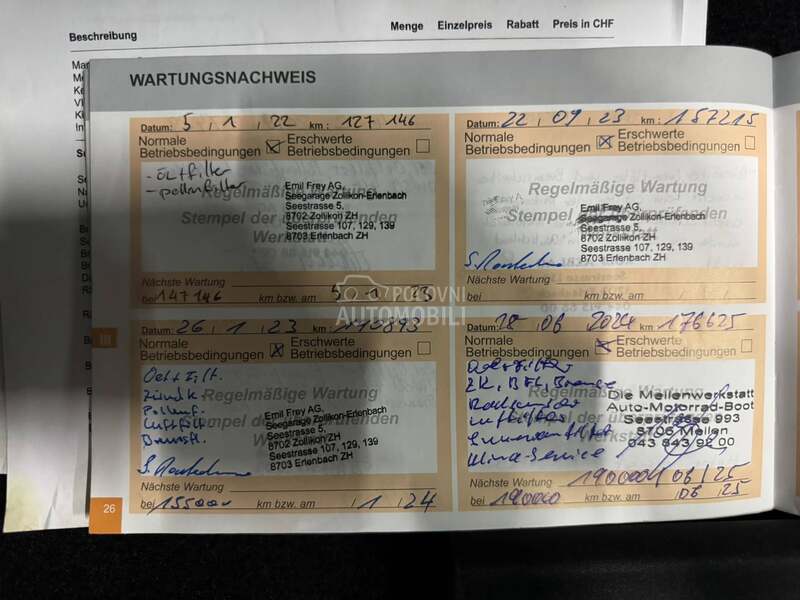 Beschreibung Menge Einzelpreis Rabatt Preis in CHF
WARTUNGSNACHWEIS
Datum: 5 , 1 , 22 km : 127 146
Normale Betriebsbedingungen Erschwerte Betriebsbedingungen
- Öl + Filter
- pollenfilter
Regelmäßige Wartung
Stempel der
Emil Frey AG,
Seegarage Zollikon-Erlenbach
Seestrasse 5,
8702 Zollikon ZH
Seestrasse 107, 129, 139
8703 Erlenbach ZH
Nächste Wartung
bei 147146 km bzw. am 5 , 1 , 23
Datum: 22 , 09 , 23 km : 157215
Normale Betriebsbedingungen Erschwerte Betriebsbedingungen
Regelmäßige Wartung
Stempel der
Emil Frey AG,
Seegarage Zollikon-Erlenbach
Seestrasse 5,
8702 Zollikon ZH
Seestrasse 107, 129, 139
8703 Erlenbach ZH
Nächste Wartung
bei km bzw. am
POLOVNI
AUTOMOBILI
III
Datum: 26 , 1 , 23 km :
Normale Betriebsbedingungen Erschwerte Betriebsbedingungen
Oel + Filt.
Zündk
Pollenf.
Luftfilt
Regelmäßige Wartung
Emil Frey AG,
Seegarage Zollikon-Erlenbach
Seestrasse 5,
8702 Zollikon ZH
Seestrasse 107, 129, 139
8703 Erlenbach ZH
Nächste Wartung
bei 155000 km bzw. am , 1 , 24
Datum: 28 06 2024 km : 176625
Normale Betriebsbedingungen Erschwerte Betriebsbedingungen
Oel + Filter
Regelmäßige Wartung
Klima-Service
Die Meilenwerkstatt
Auto-Motorrad-Boot
Seestrasse 993
8706 Meilen
043 843 92 00
Nächste Wartung 190000 06 25
bei 190000 km bzw. am 06 , 25
26